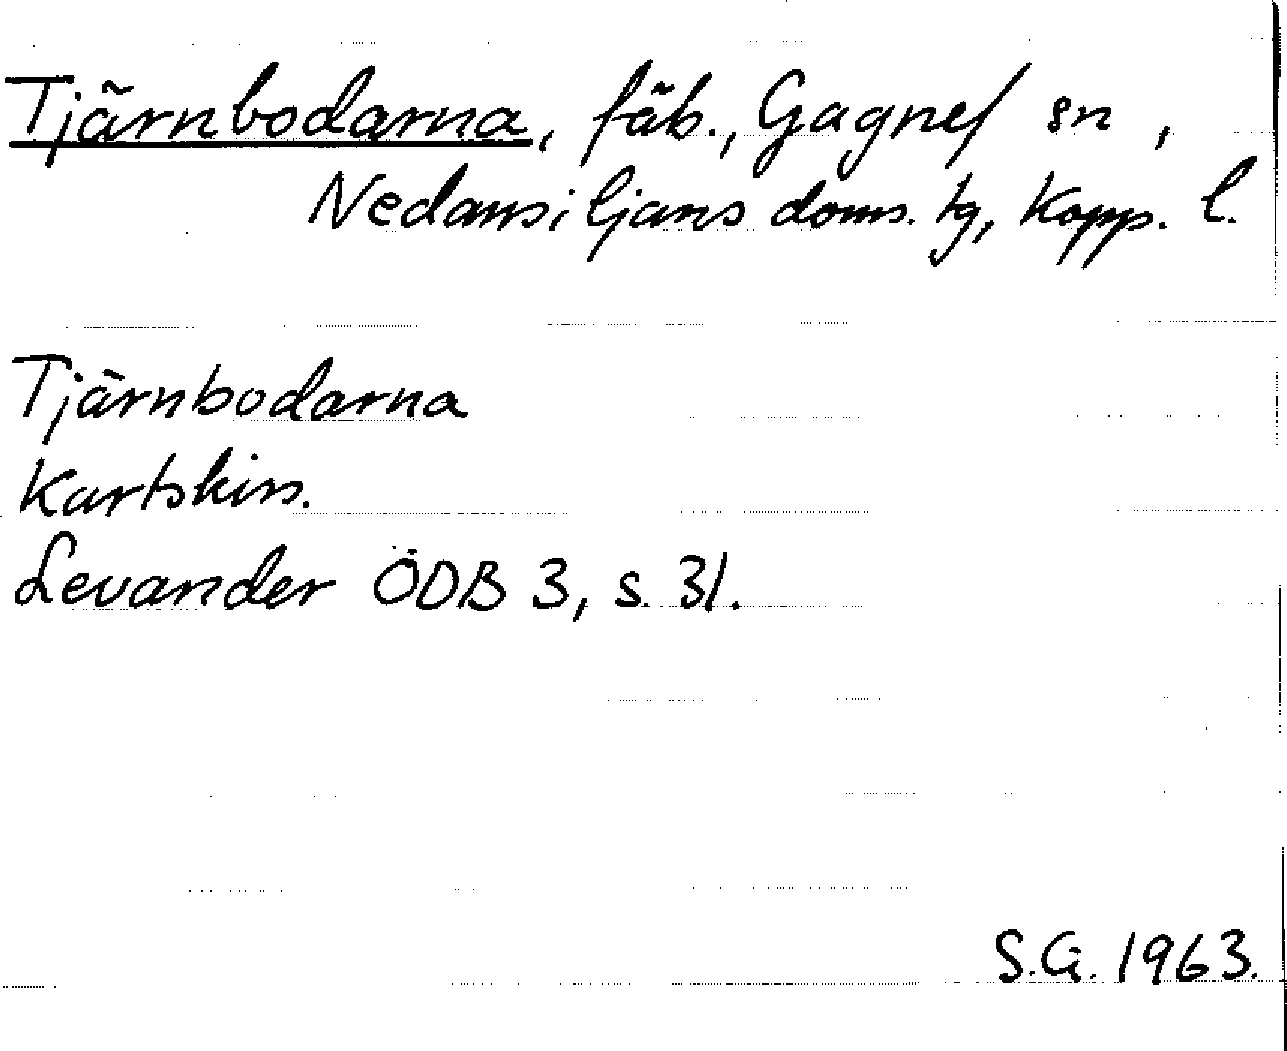 Tjärnbodarna, fäb., Gagnef sn,
Nedansiljans doms. tg, Kopp. l.
Tjärnbodarna
Kartskiss.
Levander ÖDB 3, s. 31.
S.G. 1963.